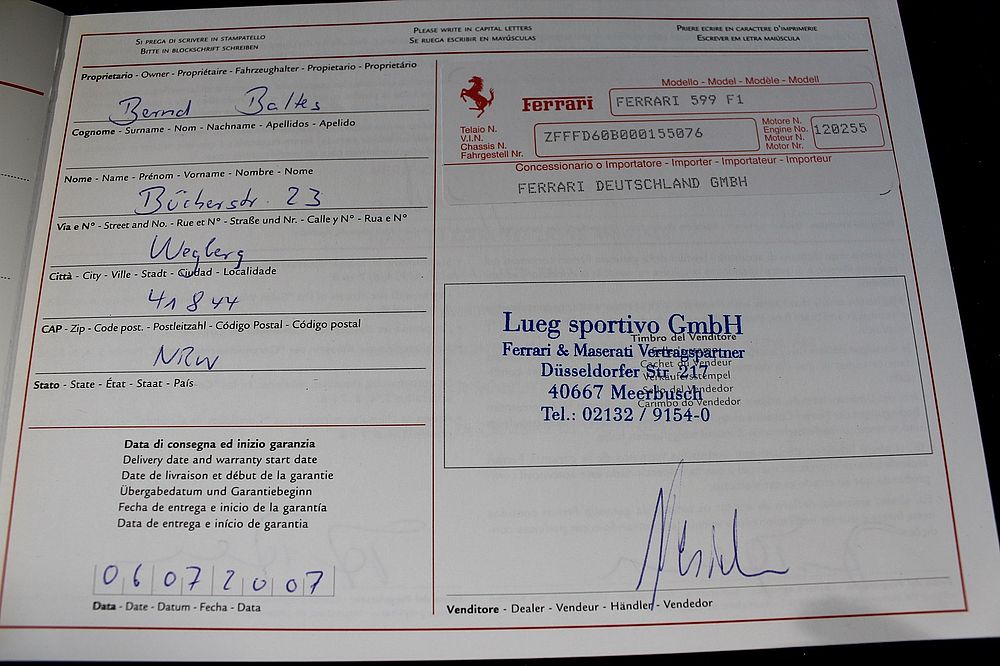 SI PREGA DI SCRIVERE IN STAMPATELLO
BITTE IN BLOCKSCHRIFT SCHREIBEN
PLEASE WRITE IN CAPITAL LETTERS
SE RUEGA ESCRIBIR EN MAYÚSCULAS
PRIERE ECRIRE EN CARACTERE D'IMPRIMERIE
ESCREVER EM LETRA MAIÚSCULA
Proprietario - Owner - Propriétaire - Fahrzeughalter - Propietario - Proprietário
Bernd Baltes
Cognome - Surname - Nom - Nachname - Apellidos - Apelido
Nome - Name - Prénom - Vorname - Nombre - Nome
Bücherstr. 23
Via e N° - Street and No. - Rue et N° - Straße und Nr. - Calle y N° - Rua e N°
Wegberg
Città - City - Ville - Stadt - Ciudad - Localidade
41844
CAP - Zip - Code post. - Postleitzahl - Código Postal - Código postal
NRW
Stato - State - État - Staat - País
Data di consegna ed inizio garanzia
Delivery date and warranty start date
Date de livraison et début de la garantie
Übergabedatum und Garantiebeginn
Fecha de entrega e inicio de la garantía
Data de entrega e início de garantia
06072007
Data - Date - Datum - Fecha - Data
Modello - Model - Modèle - Modell
Ferrari
FERRARI 599 F1
Telaio N.
V.I.N.
Chassis N.
Fahrgestell Nr.
ZFFFD60B000155076
Motore N.
Engine No.
Moteur N.
Motor Nr.
120255
Concessionario o Importatore - Importer - Importateur - Importeur
FERRARI DEUTSCHLAND GMBH
Lueg sportivo GmbH
Timbro del Venditore
Ferrari & Maserati Vertragspartner
Cachet du Vendeur
Düsseldorfer Str. 217
Verkäuferstempel
40667 Meerbusch
Sello del Vendedor
Carimbo do Vendedor
Tel.: 02132 / 9154-0
Venditore - Dealer - Vendeur - Händler - Vendedor